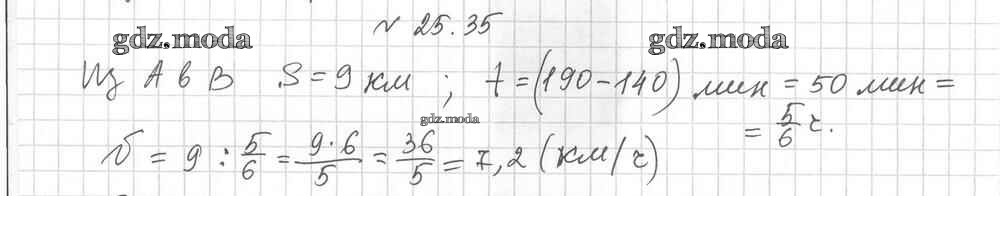 № 25.35
gdz.moda gdz.moda
Из А в В S = 9 км ; t = (190 - 140) мин = 50 мин =
gdz.moda
= 5/6 ч.
v = 9 : 5/6 = 9·6/5 = 36/5 = 7,2 (км/ч)